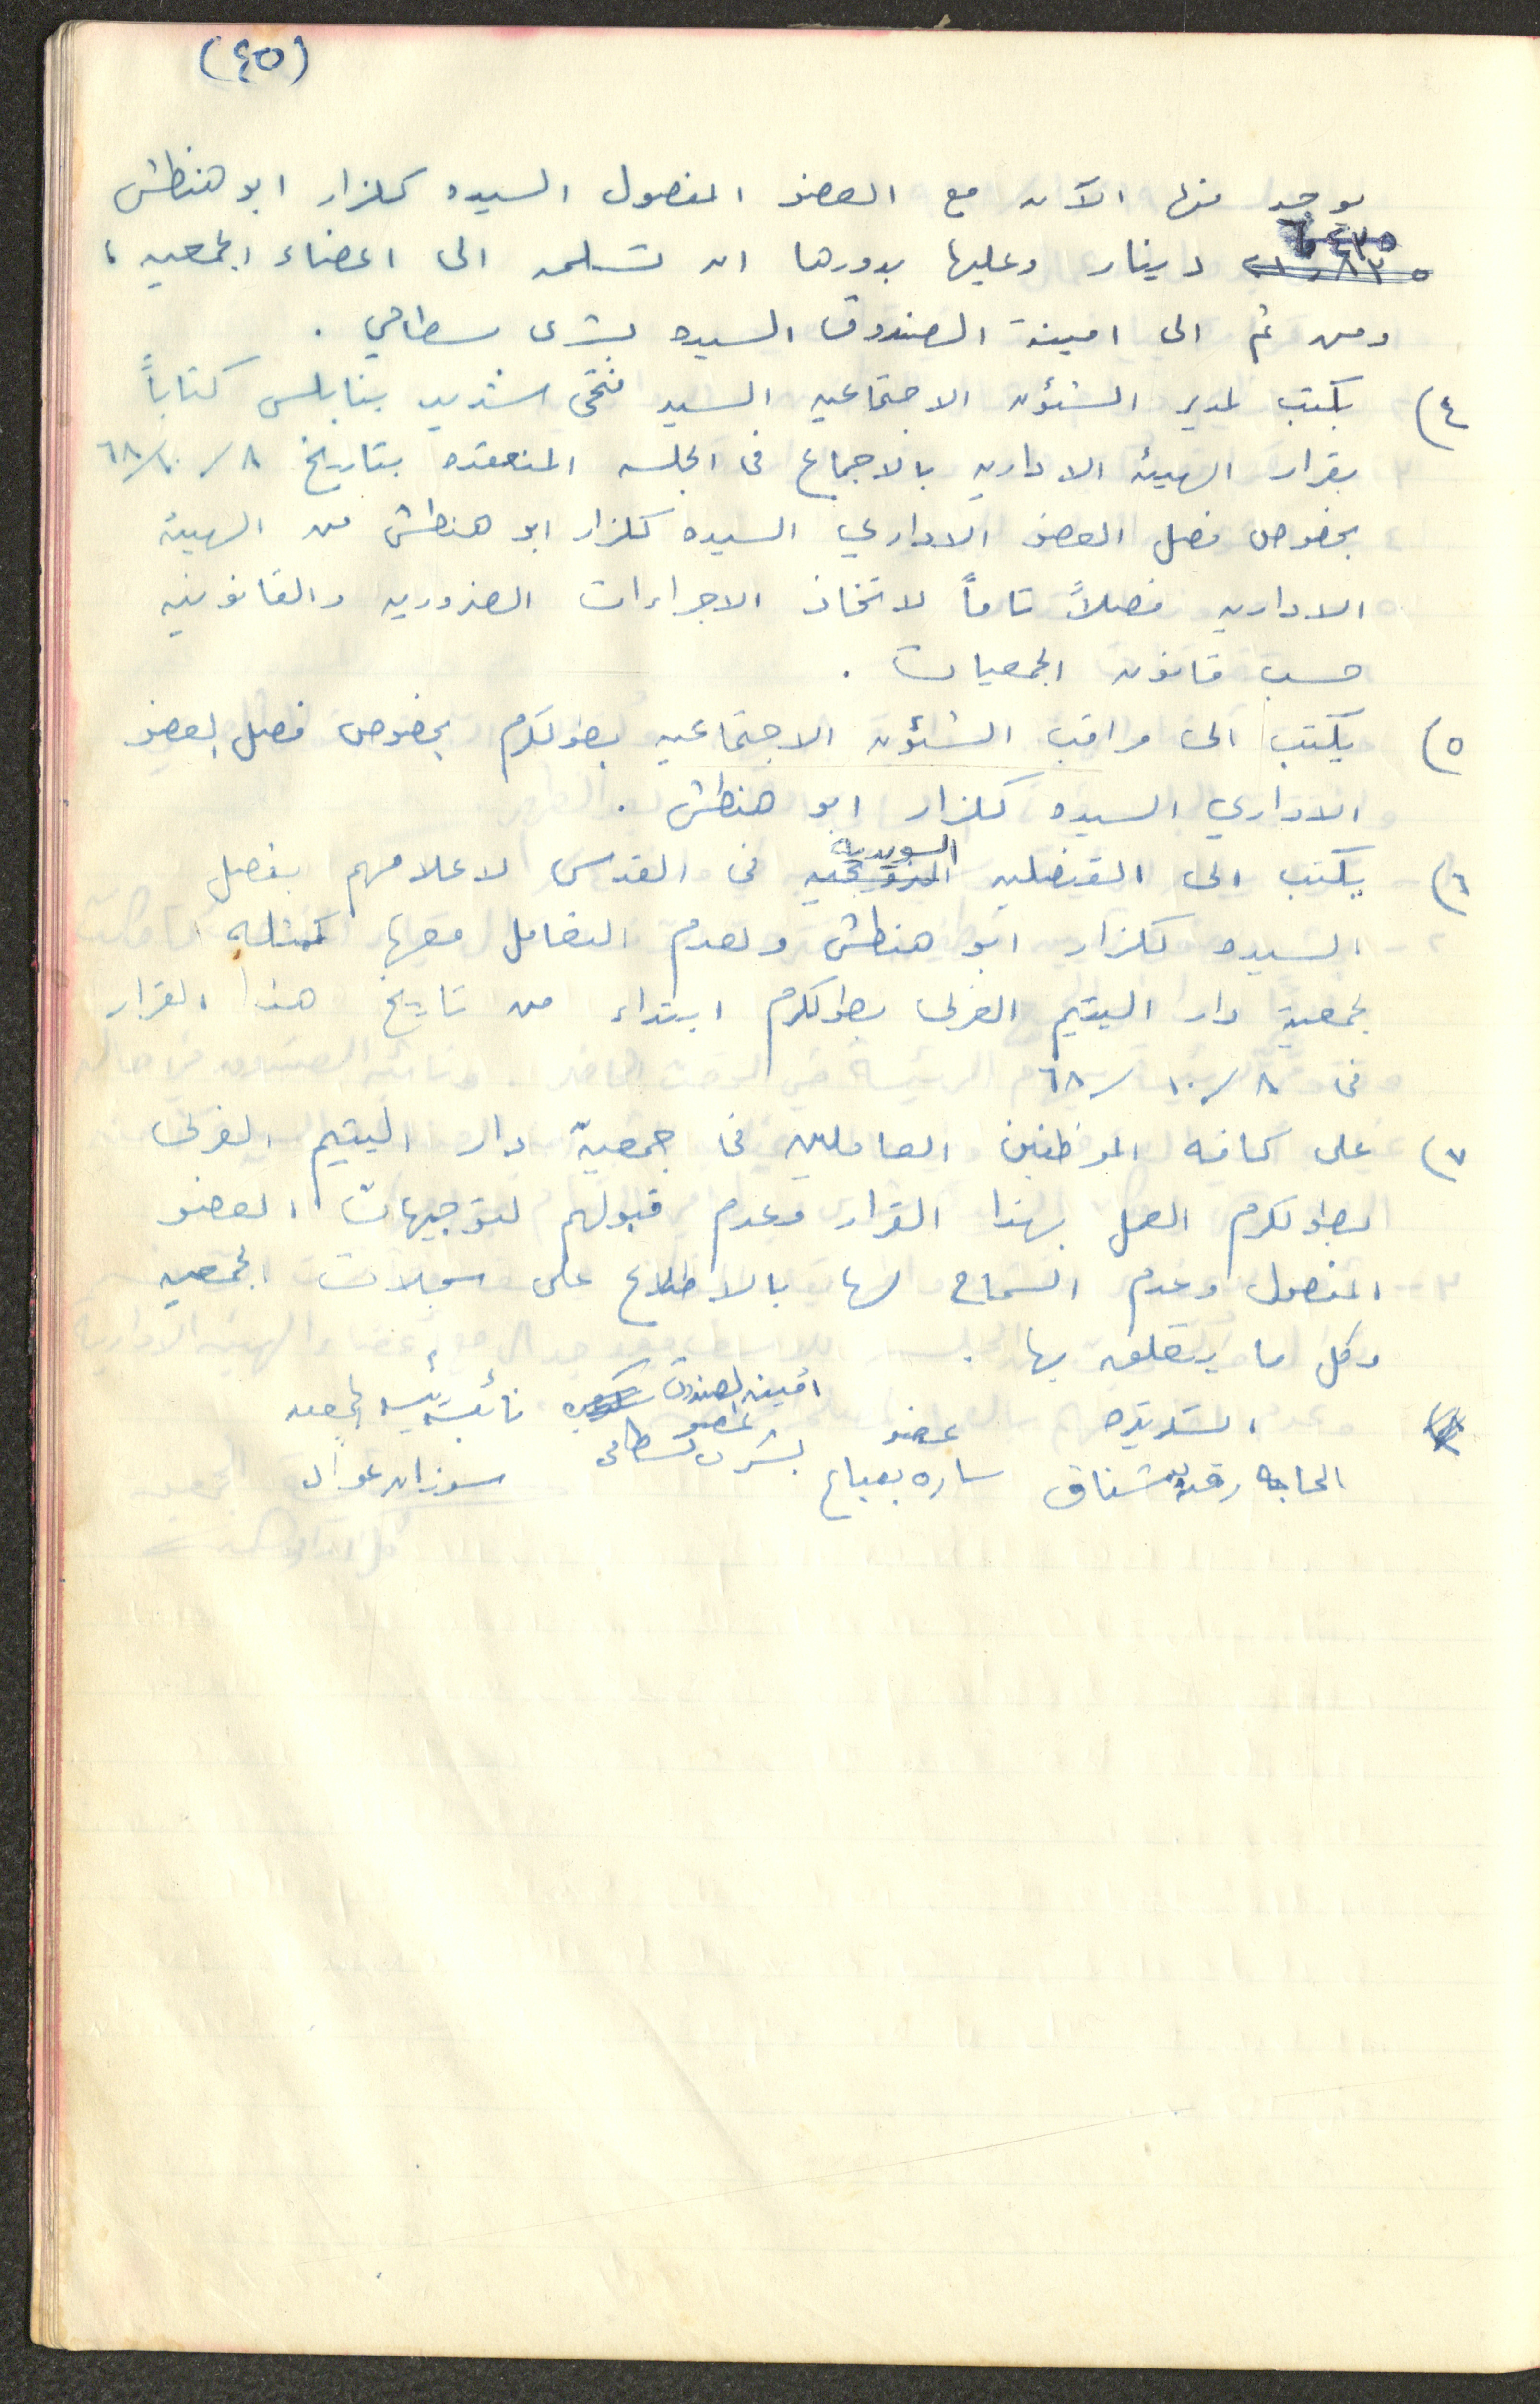 (٤٥)
يوجد منها الآن مع العضو المفصول السيده كلزار ابو هنطش
٦٤٣٥
دينار وعليها بدورها ان تسلمه الى اعضاء الجمعيه ،
ومن ثم الى امينة الصندوق السيده بشرى سطاحي .
٤) يكتب لمدير الشئون الاجتماعيه السيد فتحي شديد بنابلس كتاباً
بقرار الهيئه الاداريه بالاجماع في الجلسه المنعقده بتاريخ ٨/١٠/٦٨
بخصوص فصل العضو الاداري السيده كلزار ابو هنطش من الهيئة
الاداريه فصلاً تاماً لاتخاذ الاجراءات الضروريه والقانونيه
حسب قانون الجمعيات .
٥) يكتب الى مراقب الشئون الاجتماعيه بطولكرم بخصوص فصل العضو
الاداري السيده كلزار ابو هنطش .
السويدية
٦) يكتب الى القنصليه في القدس لاعلامهم بفصل
السيده كلزار ابو هنطش ولعدم التعامل معها كممثله
لجمعية دار اليتيم العربي بطولكرم ابتداء من تاريخ هذا القرار
في ٨/١٠/٦٨
٧) على كافه الموظفين العاملين في جمعية دار اليتيم العربي
بطولكرم العمل بهذا القرار وعدم قبولهم لتوجيهات العضو
المفصول وعدم السماح لها بالاطلاع على سجلات الجمعيه
وكل ما يتعلق بها .
عضو أمينه الصندوق نائبة رئيسه الجمعيه
الحاجه شناق ساره بعباع بشرى سطاحي سوزان